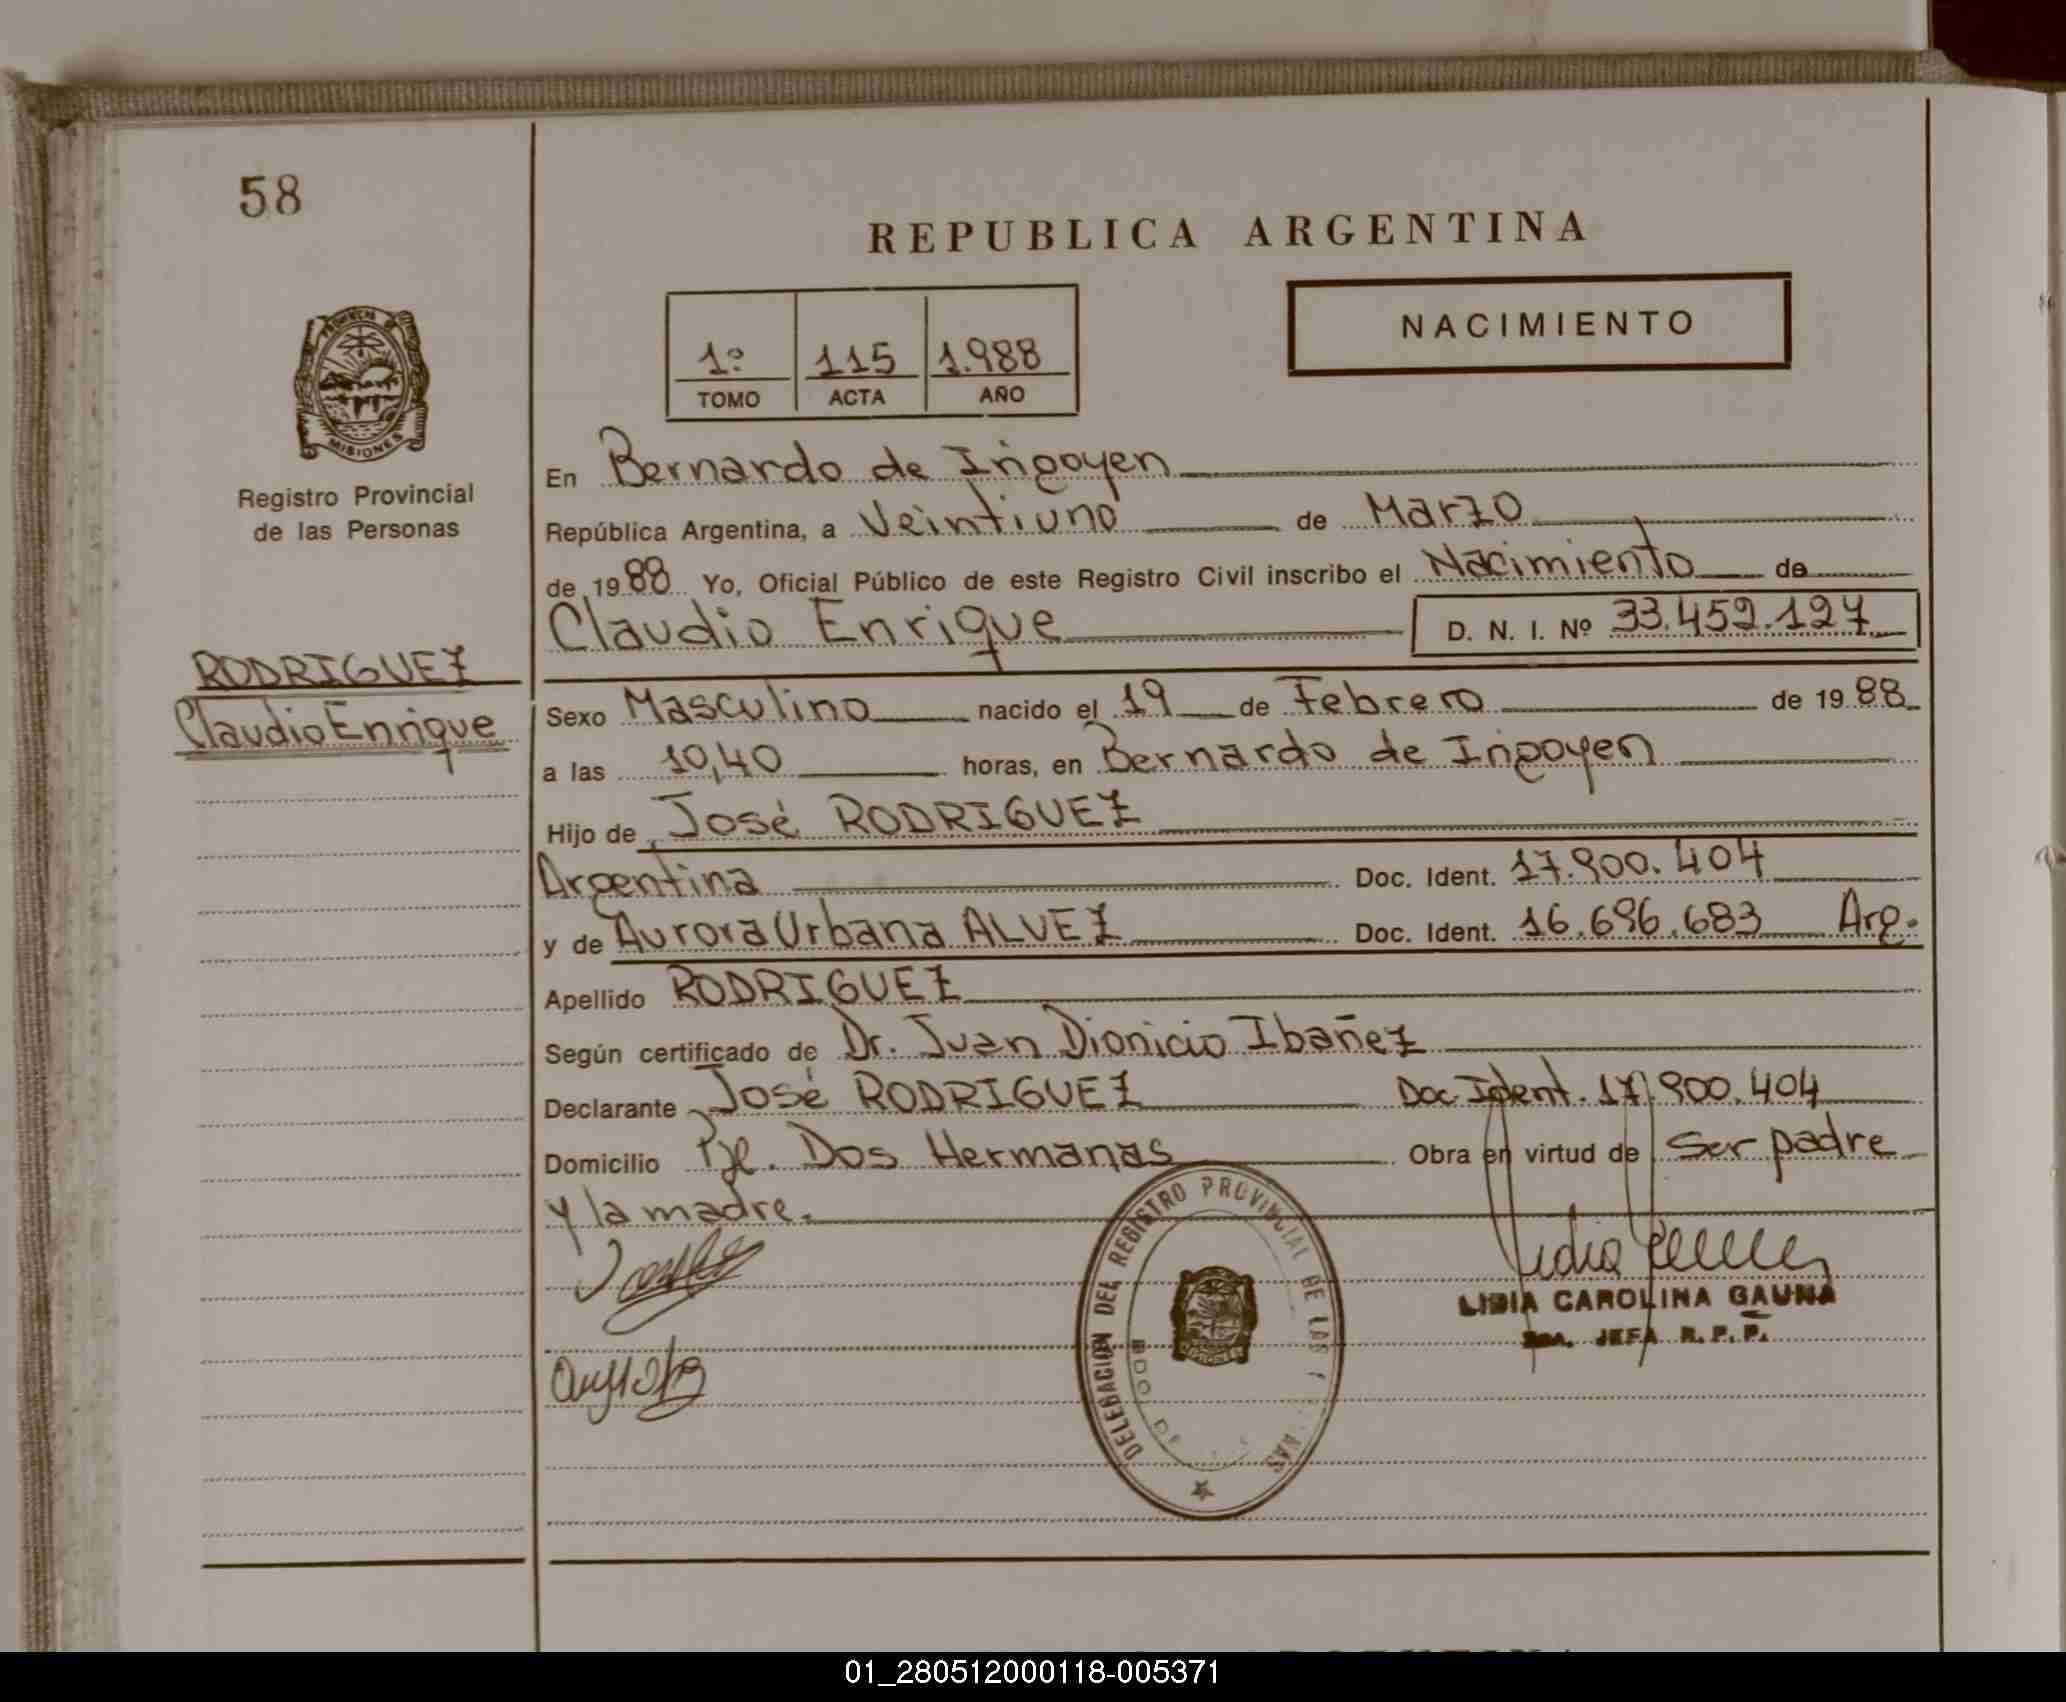 58
REPUBLICA ARGENTINA
NACIMIENTO
1º 115 1.988
TOMO ACTA AÑO
PROVINCIA DE
MISIONES
Registro Provincial
de las Personas
En Bernardo de Irigoyen
República Argentina, a Veintiuno de Marzo
de 1988 Yo, Oficial Público de este Registro Civil inscribo el Nacimiento de
Claudio Enrique D. N. I. Nº 33.459.127
RODRIGUEZ
Claudio Enrique
Sexo Masculino nacido el 19 de Febrero de 1988
a las 10,40 horas, en Bernardo de Irigoyen
Hijo de José RODRIGUEZ
Argentina Doc. Ident. 17.900.404
y de Aurora Urbana ALVEZ Doc. Ident. 16.696.683 Arg.
Apellido RODRIGUEZ
Según certificado de Dr. Juan Dionicio Ibañez
Declarante José RODRIGUEZ Doc Ident. 17.900.404
Domicilio Pje. Dos Hermanas Obra en virtud de Ser padre
y la madre.
DELEGACION DEL REGISTRO PROVINCIAL DE LAS
BDO DE
LIDIA CAROLINA GAUNA
JEFA R. P. P.
01_280512000118-005371